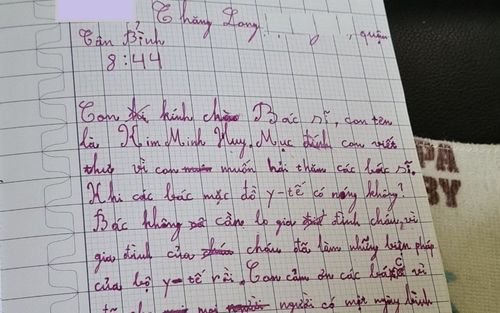 Thăng Long, , quận
Tân Bình
8:44
Con kính chào Bác sĩ, con tên
là Kim Minh Huy. Mục đính con viết
thư vì con muốn hỏi thăm các bác sĩ.
Khi các bác mặc đồ y-tế có nóng không?
Bác không cần lo gia đình cháu, vì
gia đình của cháu đã làm những biện pháp
của bộ y-tế rồi. Con cảm ơn các bác vì
mọi người có một ngày bình
PA
BY